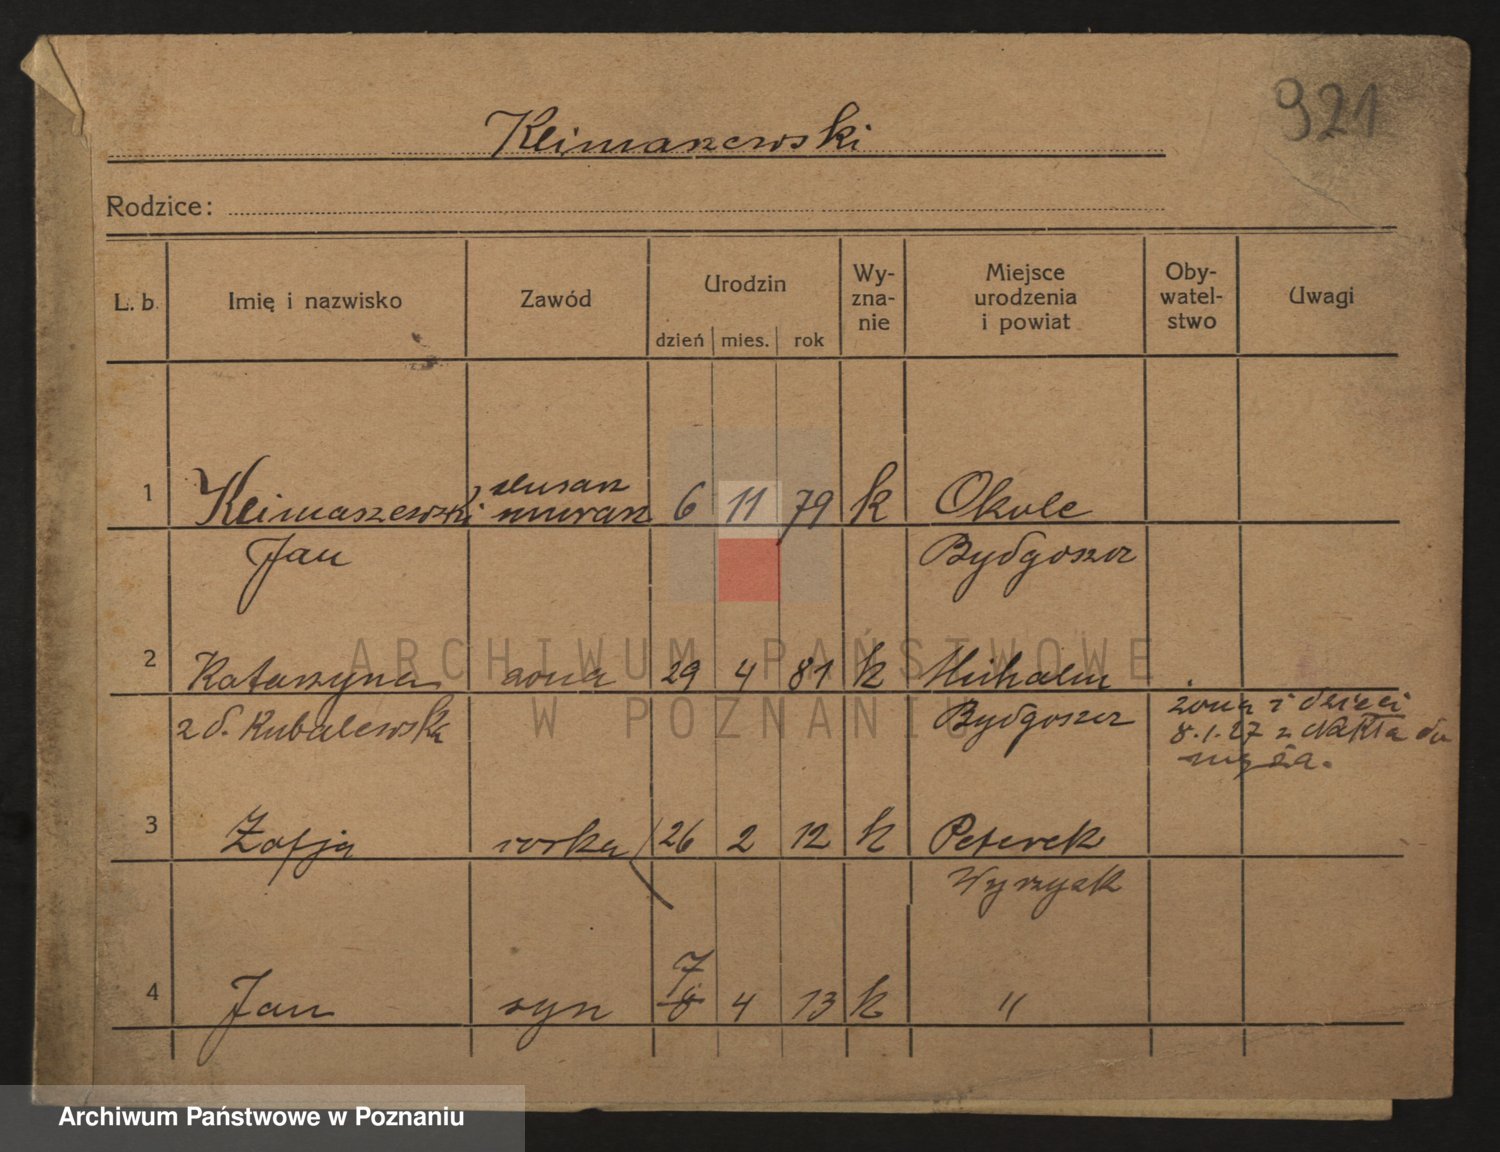 921
Klimaszewski
Rodzice:
L. b. Imię i nazwisko Zawód Urodzin dzień mies. rok Wy-zna-nie Miejsce urodzenia i powiat Oby-watel-stwo Uwagi
ślusarz
1 Klimaszewski murarz 6 11 79 k Okole
Jan Bydgoszcz
ARCHIWUM PAŃSTWOWE
2 Katarzyna żona 29 4 81 k
W POZNANIU
z d. Kubalewska Bydgoszcz żona i dzieci
8.1.27 z Nakła do
męża.
3 Zofja córka 26 2 12 k Peterek
Wyrzysk
7
4 Jan syn 8 4 13 k "
Archiwum Państwowe w Poznaniu